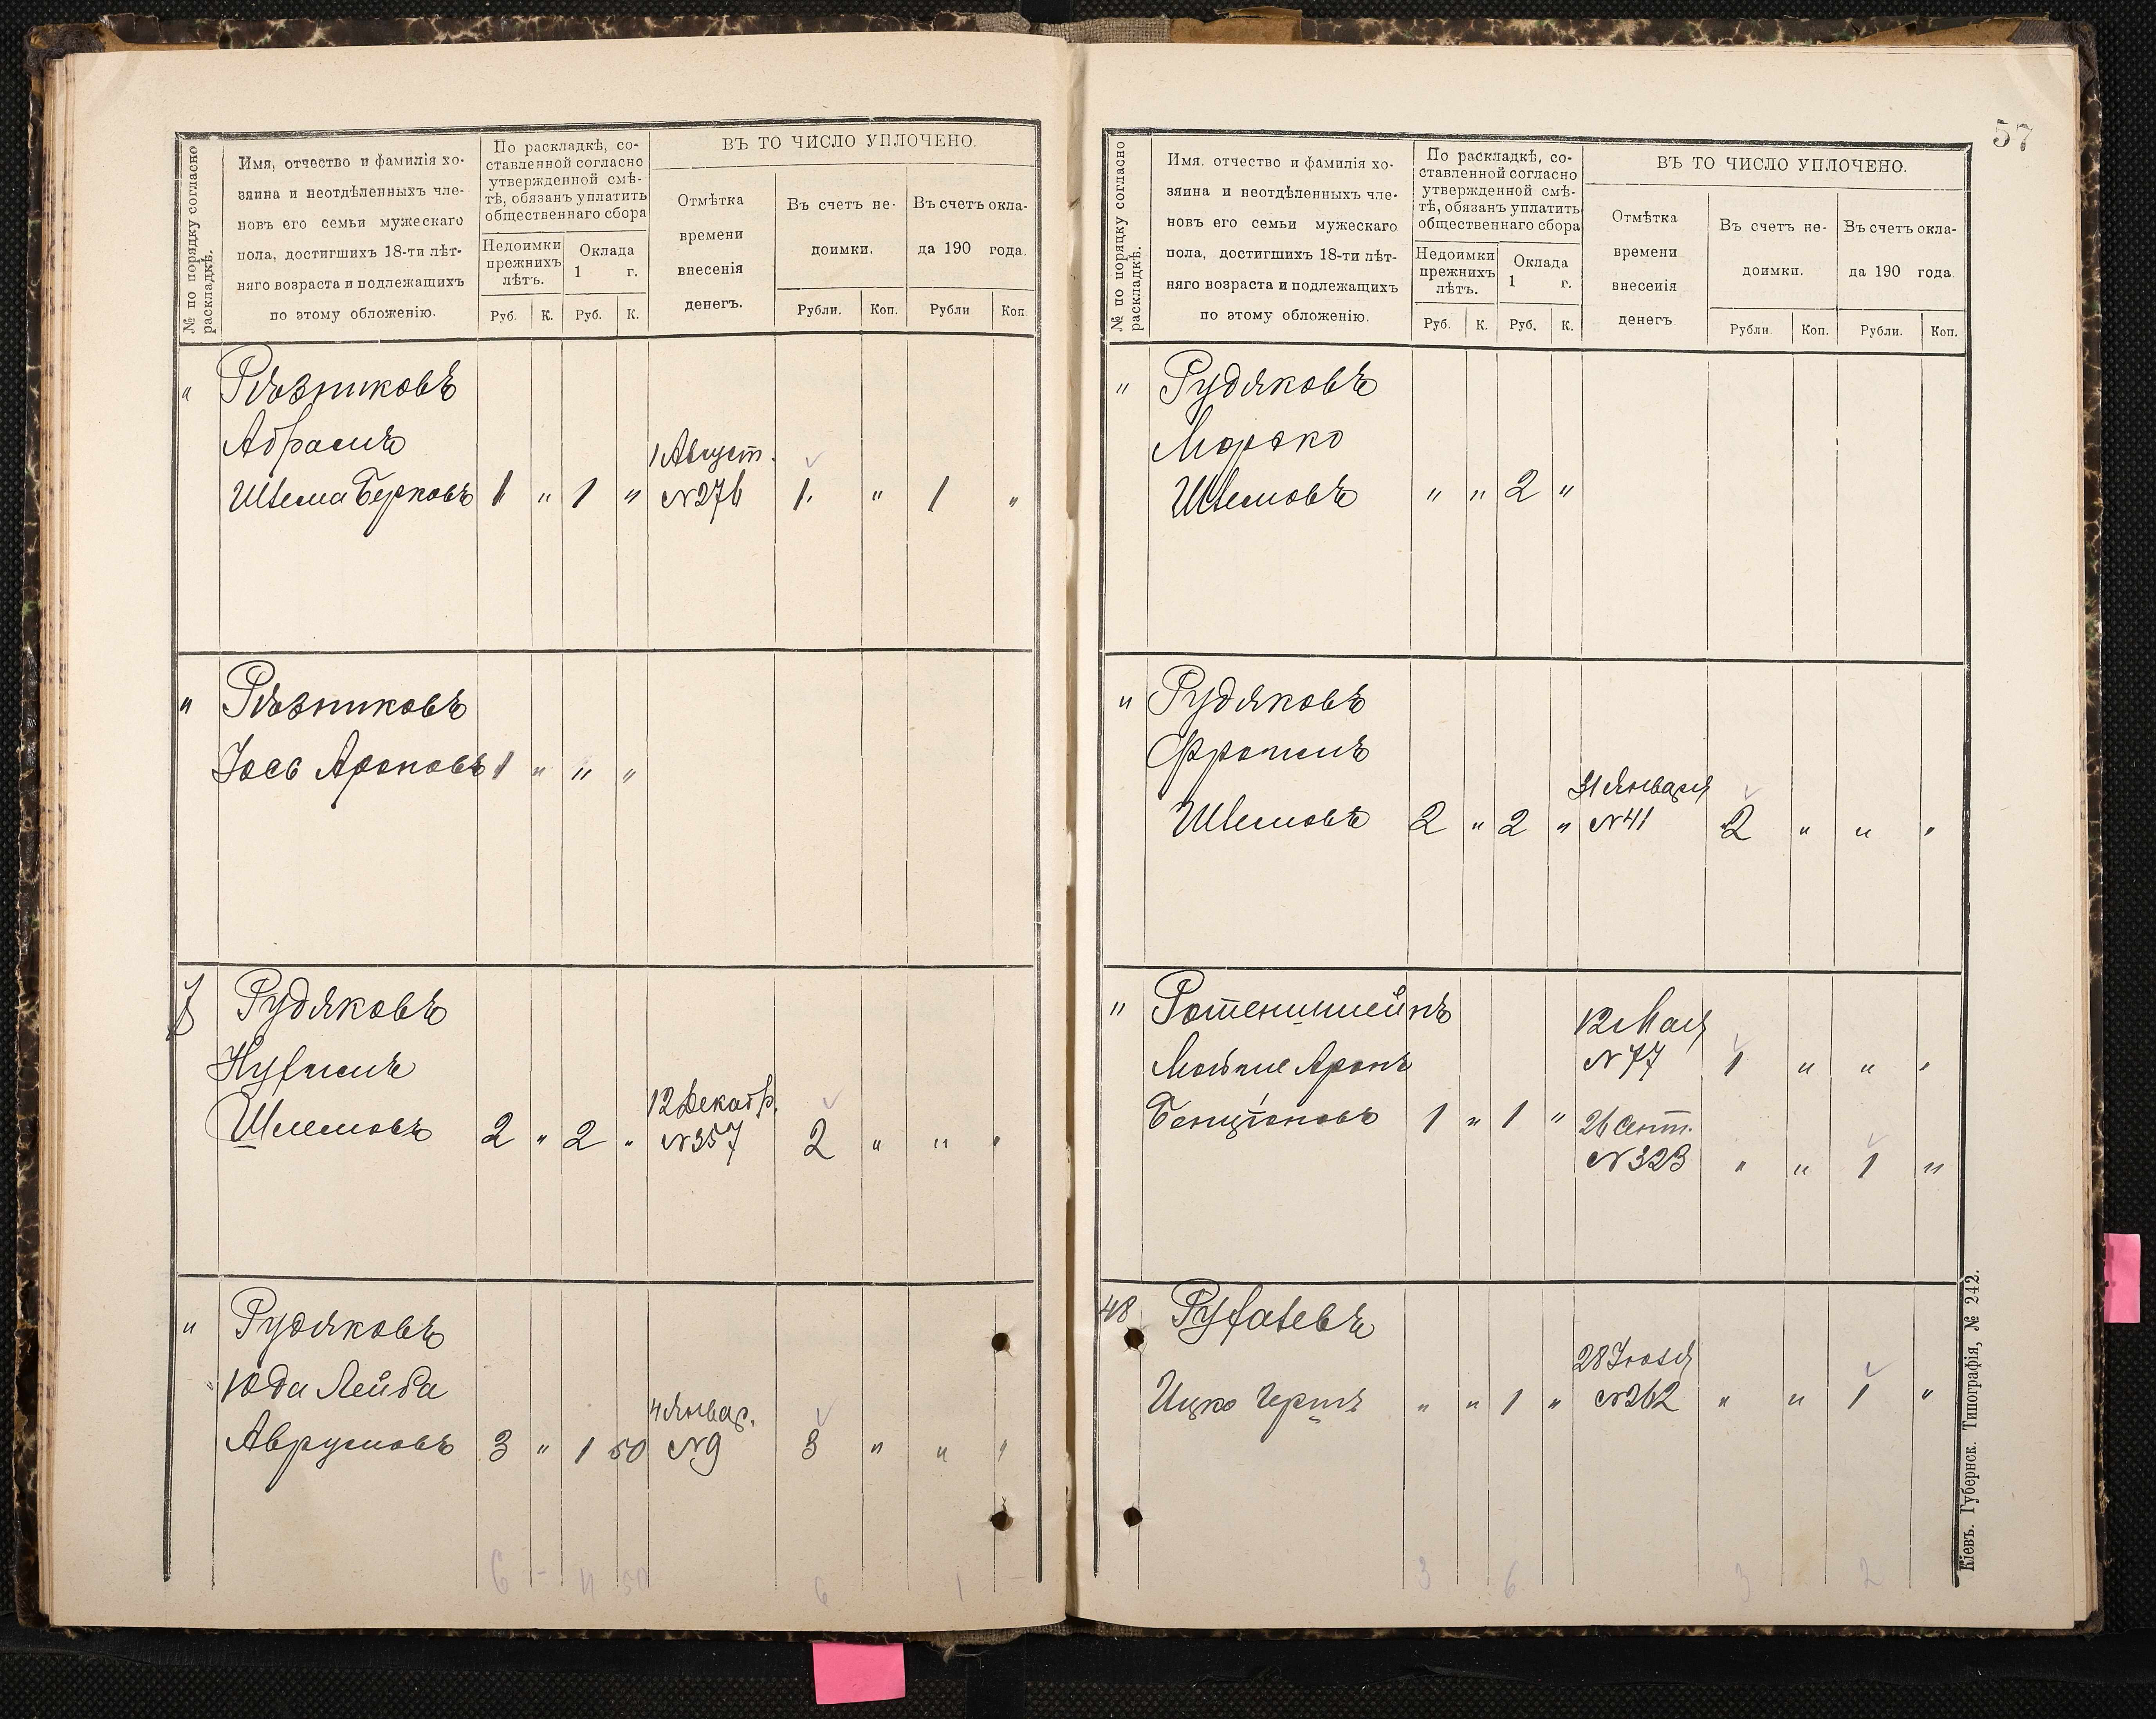 № по порядку согласно раскладкѣ.
Имя, отчество и фамилія хо-
зяина и неотдѣленныхъ чле-
новъ его семьи мужескаго
пола, достигшихъ 18-ти лѣт-
няго возраста и подлежащихъ
по этому обложенію.
По раскладкѣ, со-
ставленной согласно
утвержденной смѣ-
тѣ, обязанъ уплатить
общественнаго сбора
Недоимки
прежнихъ
лѣтъ.
Оклада
1 г.
Руб. К. Руб. К.
ВЪ ТО ЧИСЛО УПЛОЧЕНО.
Отмѣтка
времени
внесенія
денегъ.
Въ счетъ не-
доимки.
Въ счетъ окла-
да 190 года.
Рубли. Коп. Рубли Коп.
" Рѣзниковъ
Абрамъ
1 Август.
Шлема Берковъ 1 " 1 " №276 1. " 1 "
" Рѣзниковъ
Іось Ароновъ 1 " " "
Рудяковъ
Нухимъ
12 Декабр.
Шлемовъ 2 " 2 " №357 2 " " "
" Рудяковъ
Юда Лейба
4 Январ.
Аврумовъ 3 " 1 50 №9 3 " " "
6 - 4 50 6 1 -
57
№ по порядку согласно раскладкѣ.
Имя. отчество и фамилія хо-
зяина и неотдѣленныхъ чле-
новъ его семьи мужескаго
пола, достигшихъ 18-ти лѣт-
няго возраста и подлежащихъ
по этому обложенію.
По раскладкѣ, со-
ставленной согласно
утвержденной смѣ-
тѣ, обязанъ уплатить
общественнаго сбора
Недоимки
прежнихъ
лѣтъ.
Оклада
1 г.
Руб. К. Руб. К.
ВЪ ТО ЧИСЛО УПЛОЧЕНО.
Отмѣтка
времени
внесенія
денегъ.
Въ счетъ не-
доимки.
Въ счетъ окла-
да 190 года.
Рубли. Коп. Рубли. Коп.
" Рудяковъ
Мордко
Шлемовъ " " 2 "
" Рудяковъ
Фроимъ
31 Января
Шлемовъ 2 " 2 " №41 2 " " "
" Ротенштейнъ
12 Мая
Мойше Аронъ №77 1 " " "
Бенціоновъ 1 " 1 " 26 Сент.
№323 " " 1 "
48 Руфаевъ
28 Іюля
Ицко " " 1 " №262 " " 1 "
3 6 3 2
Кіевъ. Губернск. Типографія, № 242.